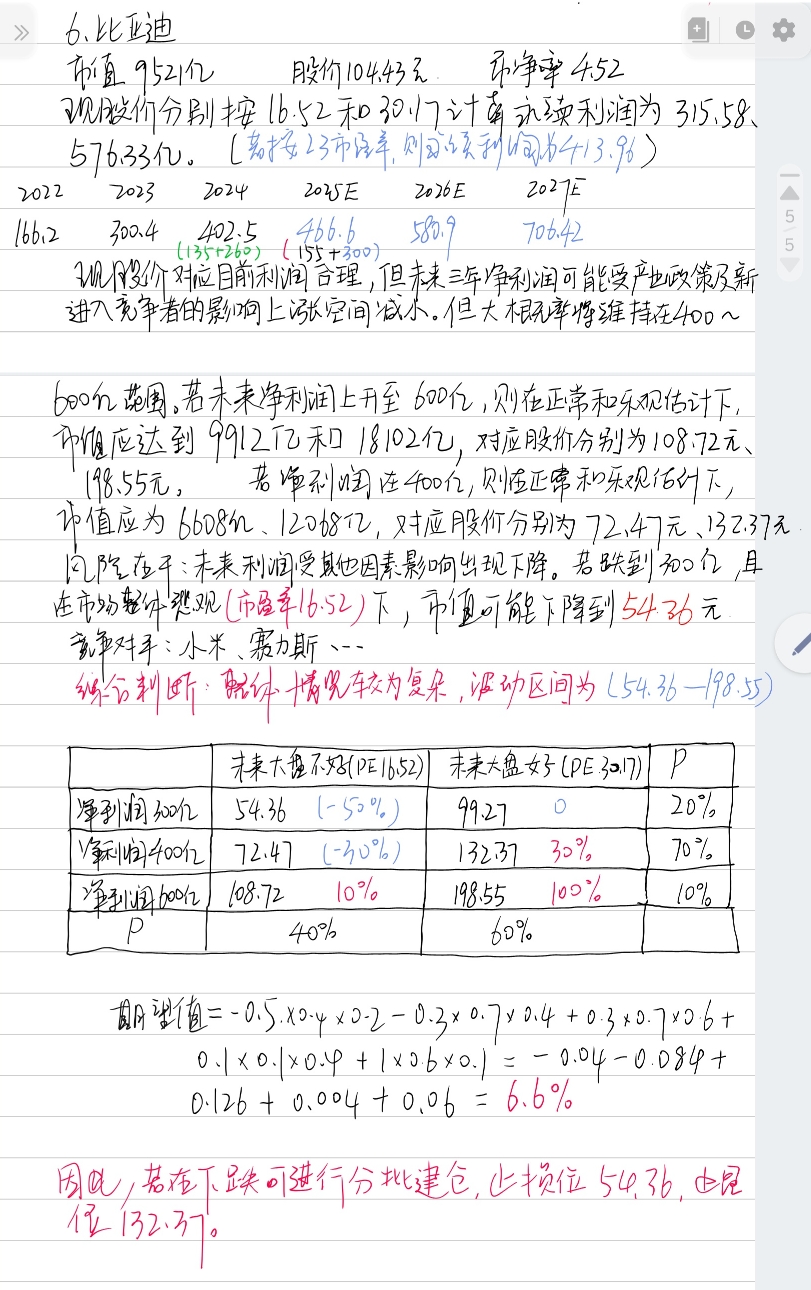 6、比亚迪
市值 9521亿 股价104.43元 市净率 4.52
现股价分别按16.52和30.17计算永续利润为315.58、
576.33亿。(若按23市盈率,则永续利润为413.96)
2022 2023 2024 2025E 2026E 2027E
166.2 300.4 402.5 466.6 580.9 706.42
(135+260) (155+300)
现股价对应目前利润合理,但未来三年净利润可能受产业政策及新
进入竞争者的影响上涨空间减小。但大概率将维持在400~
5
5
600亿范围。若未来净利润上升至600亿,则在正常和乐观估计下,
市值应达到9912亿和18102亿,对应股价分别为108.72元、
198.55元。 若净利润在400亿,则在正常和乐观估计下,
市值应为6608亿、12068亿,对应股价分别为72.47元、132.37元.
风险在于:未来利润受其他因素影响出现下降。若跌到300亿,且
在市场整体悲观(市盈率16.52)下,市值可能下降到54.36元
竞争对手:小米、赛力斯、…
综合判断:整体情况较为复杂,波动区间为(54.36—198.55)
未来大盘不好(PE16.52) 未来大盘好(PE.30.17) P
净利润300亿 54.36 (-50%) 99.27 0 20%
净利润400亿 72.47 (-30%) 132.37 30% 70%
净利润600亿 108.72 10% 198.55 100% 10%
P 40% 60%
期望值=-0.5×0.4×0.2-0.3×0.7×0.4+0.3×0.7×0.6+
0.1×0.1×0.4+1×0.6×0.1=-0.04-0.084+
0.126+0.004+0.06=6.6%
因此,若在下跌可进行分批建仓,止损位54.36,止盈
位132.37。